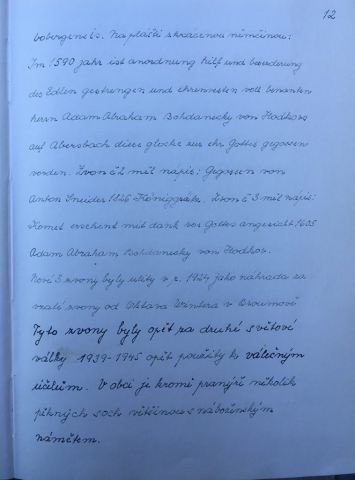 12
bobergenets. Na plášti zkrácenou němčinou:
Im 1590 jahr ist anordnung hilf und besuderung
des Edlen gestrengen und ehrenvesten voll benanten
herrn Adam Abraham Bohdanecky von Hodkova
auf Abersbach diese glocke zur ehr Gottes gegossen
vorden. Zvon č 2 měl nápis: Gegossen von
Anton Sneider 1826 Königgräz. Zvon č 3 měl nápis:
Komet erscheint mit dank vor Gottes angesicht 1635
Adam Abraham Bohdanecky von Hodkov.
Nové 3 zvony byly ulity v r. 1924 jako náhrada za
vzaté zvony od Oktava Wintera v Broumově
Tyto zvony byly opět za druhé světové
války 1939-1945 opět použity k válečným
účelům. V obci je kromě pranýře několik
pěkných soch většinou s nábožným
námětem.